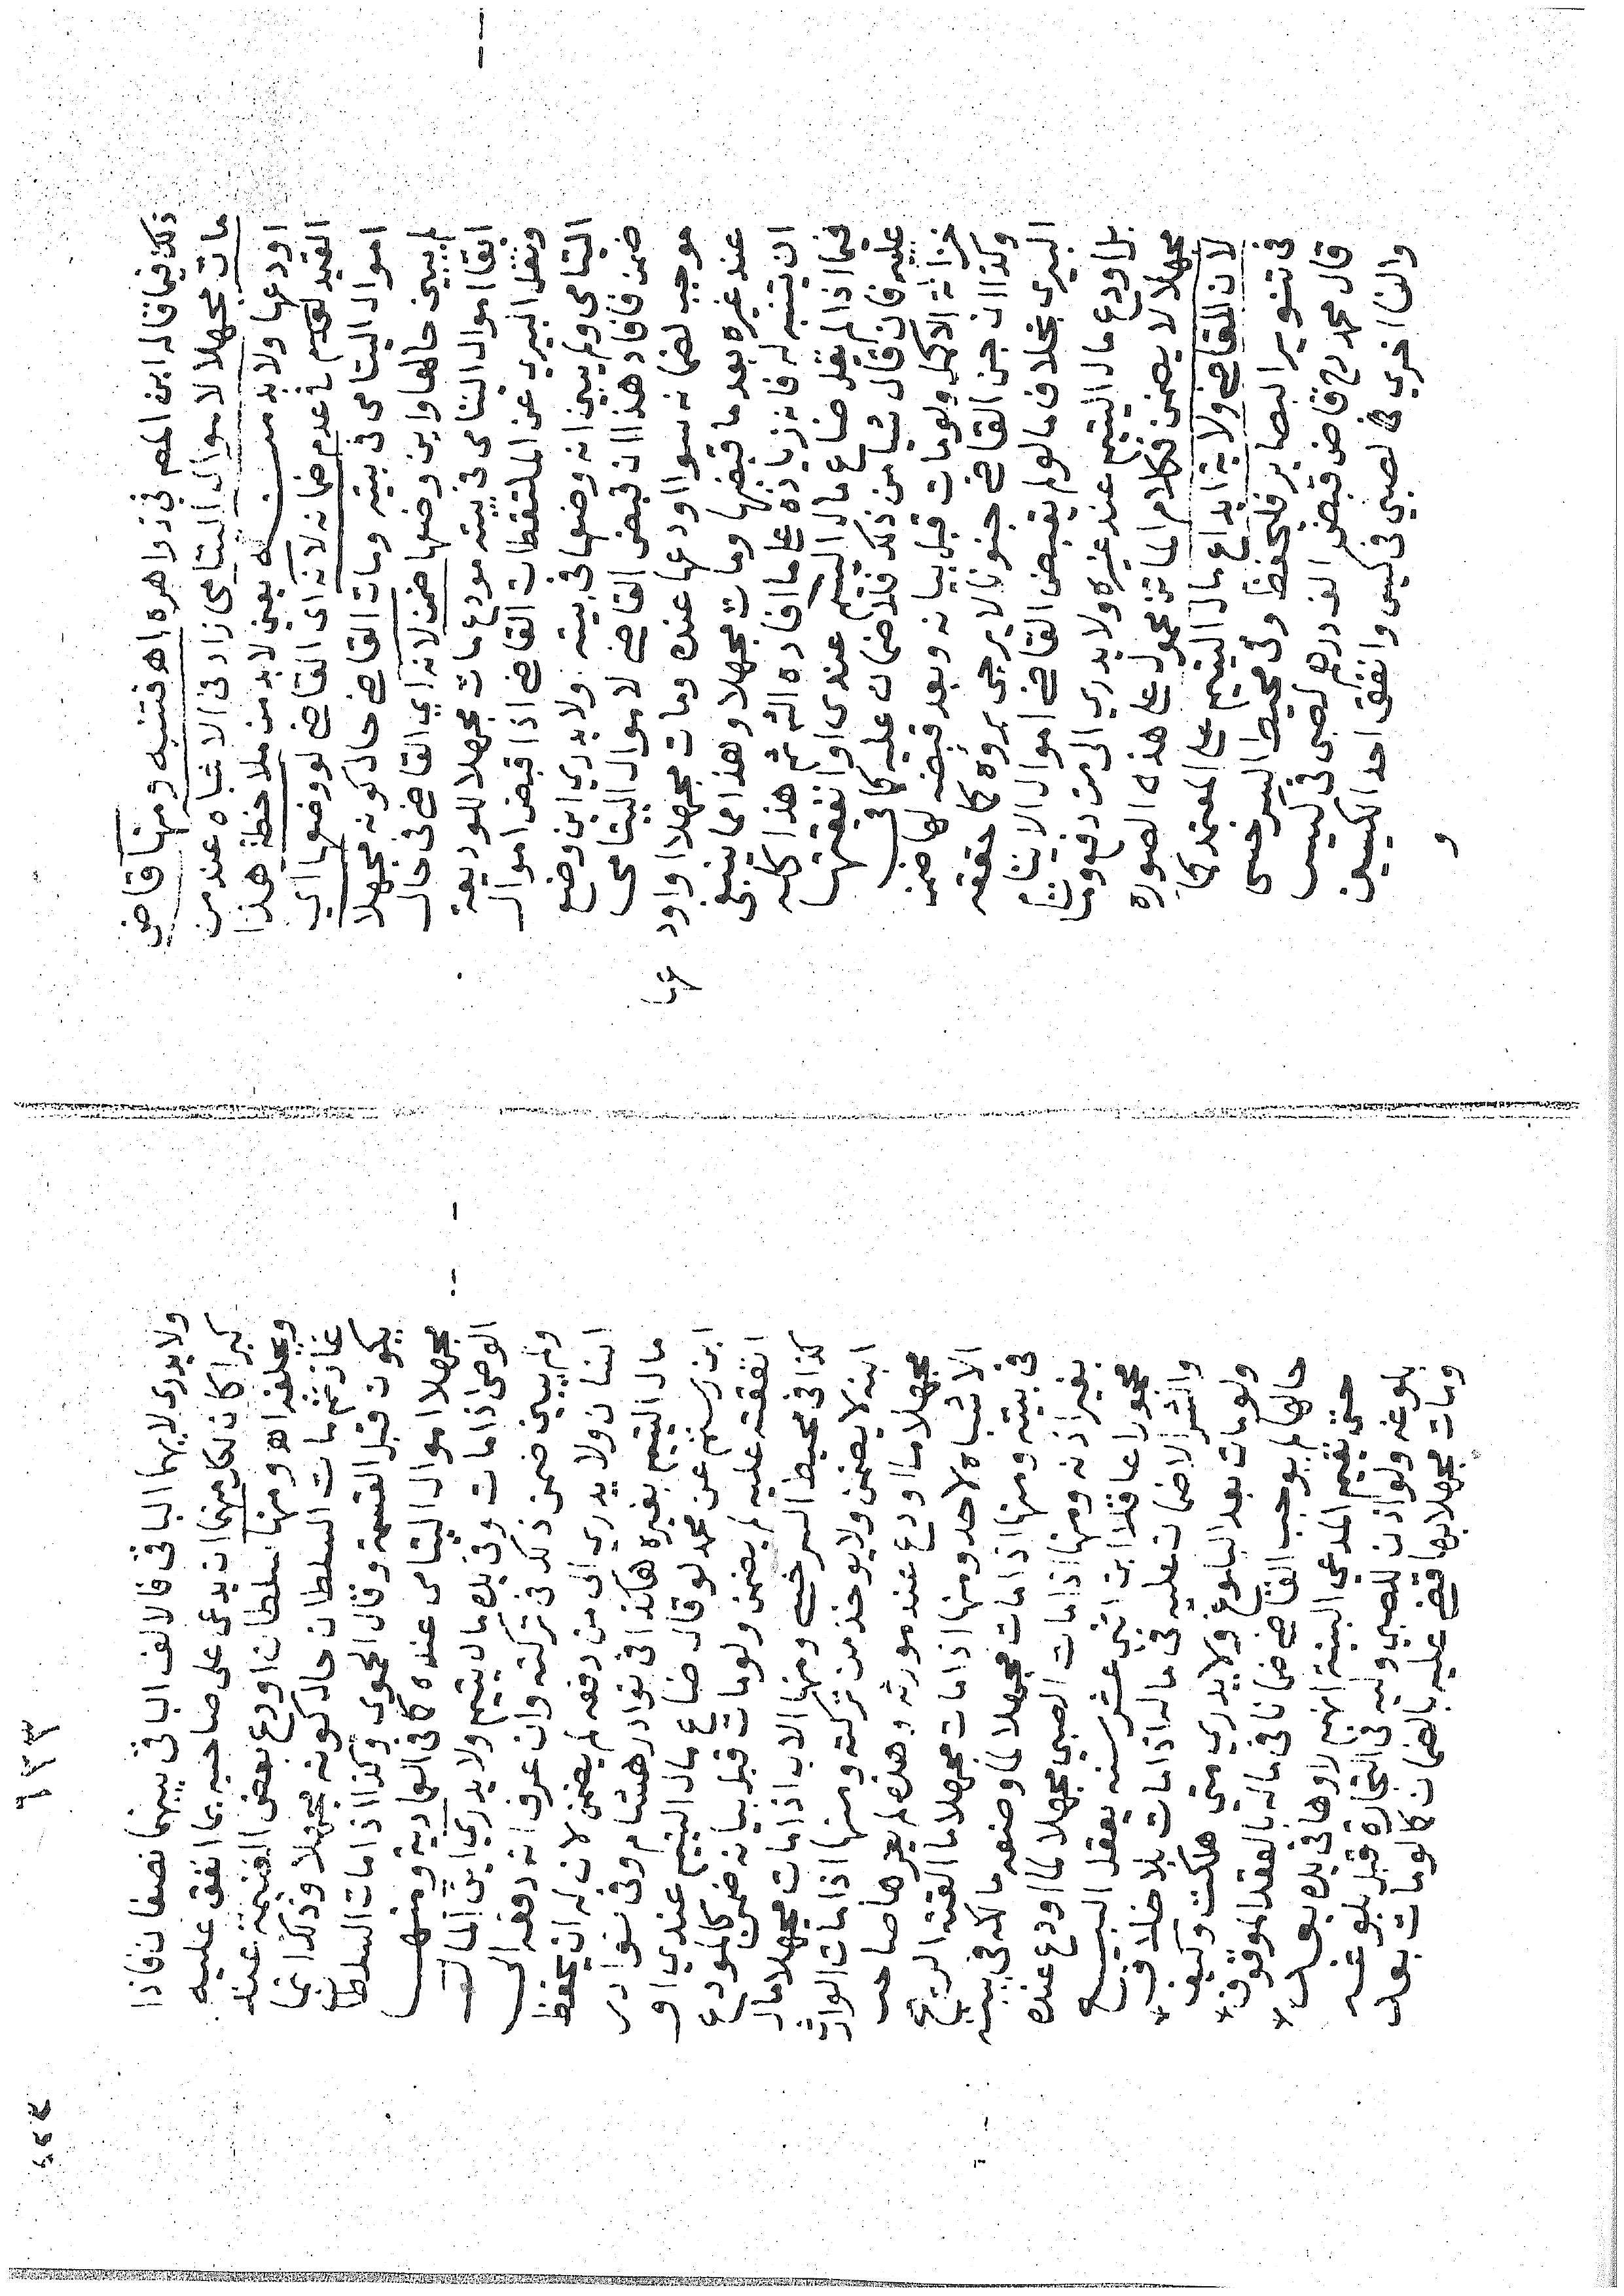 ذلك فيما قاله ابن المصـ في زواهره اهـ فتنبه ومنها قاض
مات مجهلا لاموال اليتامى زاد في الاشباه عند من
اودعها ولابد منه يعني لابد من ملاحظة هذا
القيد لعدم ضمانه لانه اى القاضى لو وضعها اي
اموال اليتامى في بيته ومات القاضى حال كونه مجهلا
لم يبين حالها واين وضعها ضمن لانه اي القاضى في حال
ابقا اموال اليتامى في بيته مودع مات مجهلا للوديعة
ونقل البيري عن الملتقطات القاضى اذا قبض اموال
اليتامى ولم يبين انه وضعها في بيته ولا يدري اين وضع
ضمن فافاد هذا ان قبض القاضى لاموال اليتامى
موجب لضمانه سوا اودعها عنده ومات مجهلا او اود
عها
عند غيره بعد ما قبضها ومات مجهلا وهذا مما ينبغي
ان يتنبه له فانه زيادة على ما افاده ثم هذا كله
فيما اذا لم يقل ضاع مال اليتيم عندى او انفقتها
عليه فان قال شيا من ذلك فلا ضمان عليه كما في
خزانة الاكمل ولو مات قبل بيانه وبعد قبضه لها ضمن
وكذا ان جن القاضى جنونا لا يرجى برؤه كما حققه
البيري بخلاف ما لو لم يقبض القاضى اموال الايتام
بل اودع مال اليتيم عند غيره ولا يدري الى من دفع ومات
مجهلا لا يضمن فكلام الماتن محمول على هذه الصورة
لان القاضى ولاية ايداع مال اليتيم على المعتمد كما
في تنوير البصاير فليحفظ وفي محيط السرخسى
قال محمد رح قاض قبض الف درهم لصبى في كيس
والفا اخري لصبي في كيس وانفق احد الكيسين
و
٢٢٢
٦٣٣
ولا يدرى لايهما الباقى فالالف الباقى بينهما نصفان فاذا
كبرا كان لكل منهما ان يدعى على صاحبه بما انفق عليه
ويحلفه اهـ ومنها سلطان اودع بعض الغنيمة عند
غاز ثم مات السلطان حال كونه مجهلا وذلك انما
يكون قبل القسمة وقال الحموى وكذا اذا مات السلطان
مجهلا اموال اليتامى عنده كما في العمادية ومنها
الوصى اذا مات وفي يده مال يتيم ولا يدري اين المال
ولم يبين ضمن ذلك في تركته وان عرف انه دفعه الى
انسان ولا يدري الى من دفعه لم يضمن لان له ان يحفظ
مال اليتيم بغيره هكذا في نوادر هشام وفي نوادر
ابن رستم عن محمد لو قال ضاع مال اليتيم عندي او
انفقته عليه لم يضمن ولو مات قبل بيانه ضمن كالمودع
كذا في محيط السرخسي ومنها الاب اذا مات مجهلا مال
ابنه لا يضمن ولا يوخذ من تركته ومنها اذا مات الوارث
مجهلا ما اودع عند مورثه وهذه لم يعزها صاحب
الاشباه لاحد ومنها اذا مات مجهلا ما القته الريح
في بيته ومنها اذا مات مجهلا لما وضعه مالكه في بيته
بغير اذنه ومنها اذا مات الصبي مجهلا لما اودع عنده
محجورا عاقلا ابن اثني عشر سنه يعقل البيع
والشرا لا ضمان عليه في ماله اذا مات بلا خلاف *
ولو مات بعد البلوغ ولا يدري متى هلكت وكيف
حالها لم يوجب القاضى ضمانا في ماله بالعقد الموقوف *
حتى يقيم المدعي البينة انهم راوها في يده بعد *
بلوغه ولو اذن للصبي وليه في التجارة قبل بلوغه
ومات مجهلا بها قضى عليه بالضمان كما لو مات بعد